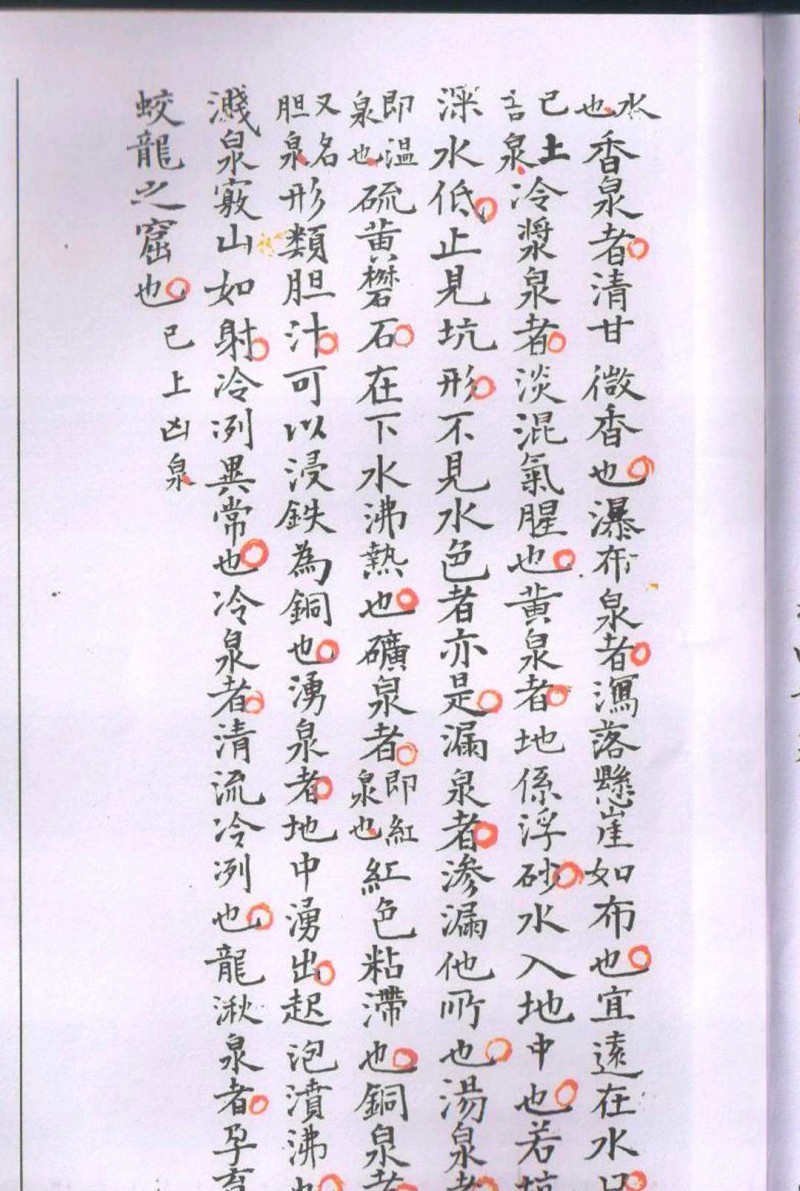 水也香泉者清甘微香也瀑布泉者瀉落懸崖如布也宜遠在水口
已上言泉冷漿泉者淡混氣腥也黃泉者地係浮砂水入地中也若坑
深水低止見坑形不見水色者亦是漏泉者滲漏他所也湯泉者
即温泉也硫黃礬石在下水沸熱也礦泉者即紅泉也紅色粘滯也銅泉者
又名胆泉形類胆汁可以浸鉄為銅也湧泉者地中湧出起泡濆沸也
濺泉竅山如射冷冽異常也冷泉者清流冷冽也龍湫泉者孕育
蛟龍之窟也已上凶泉